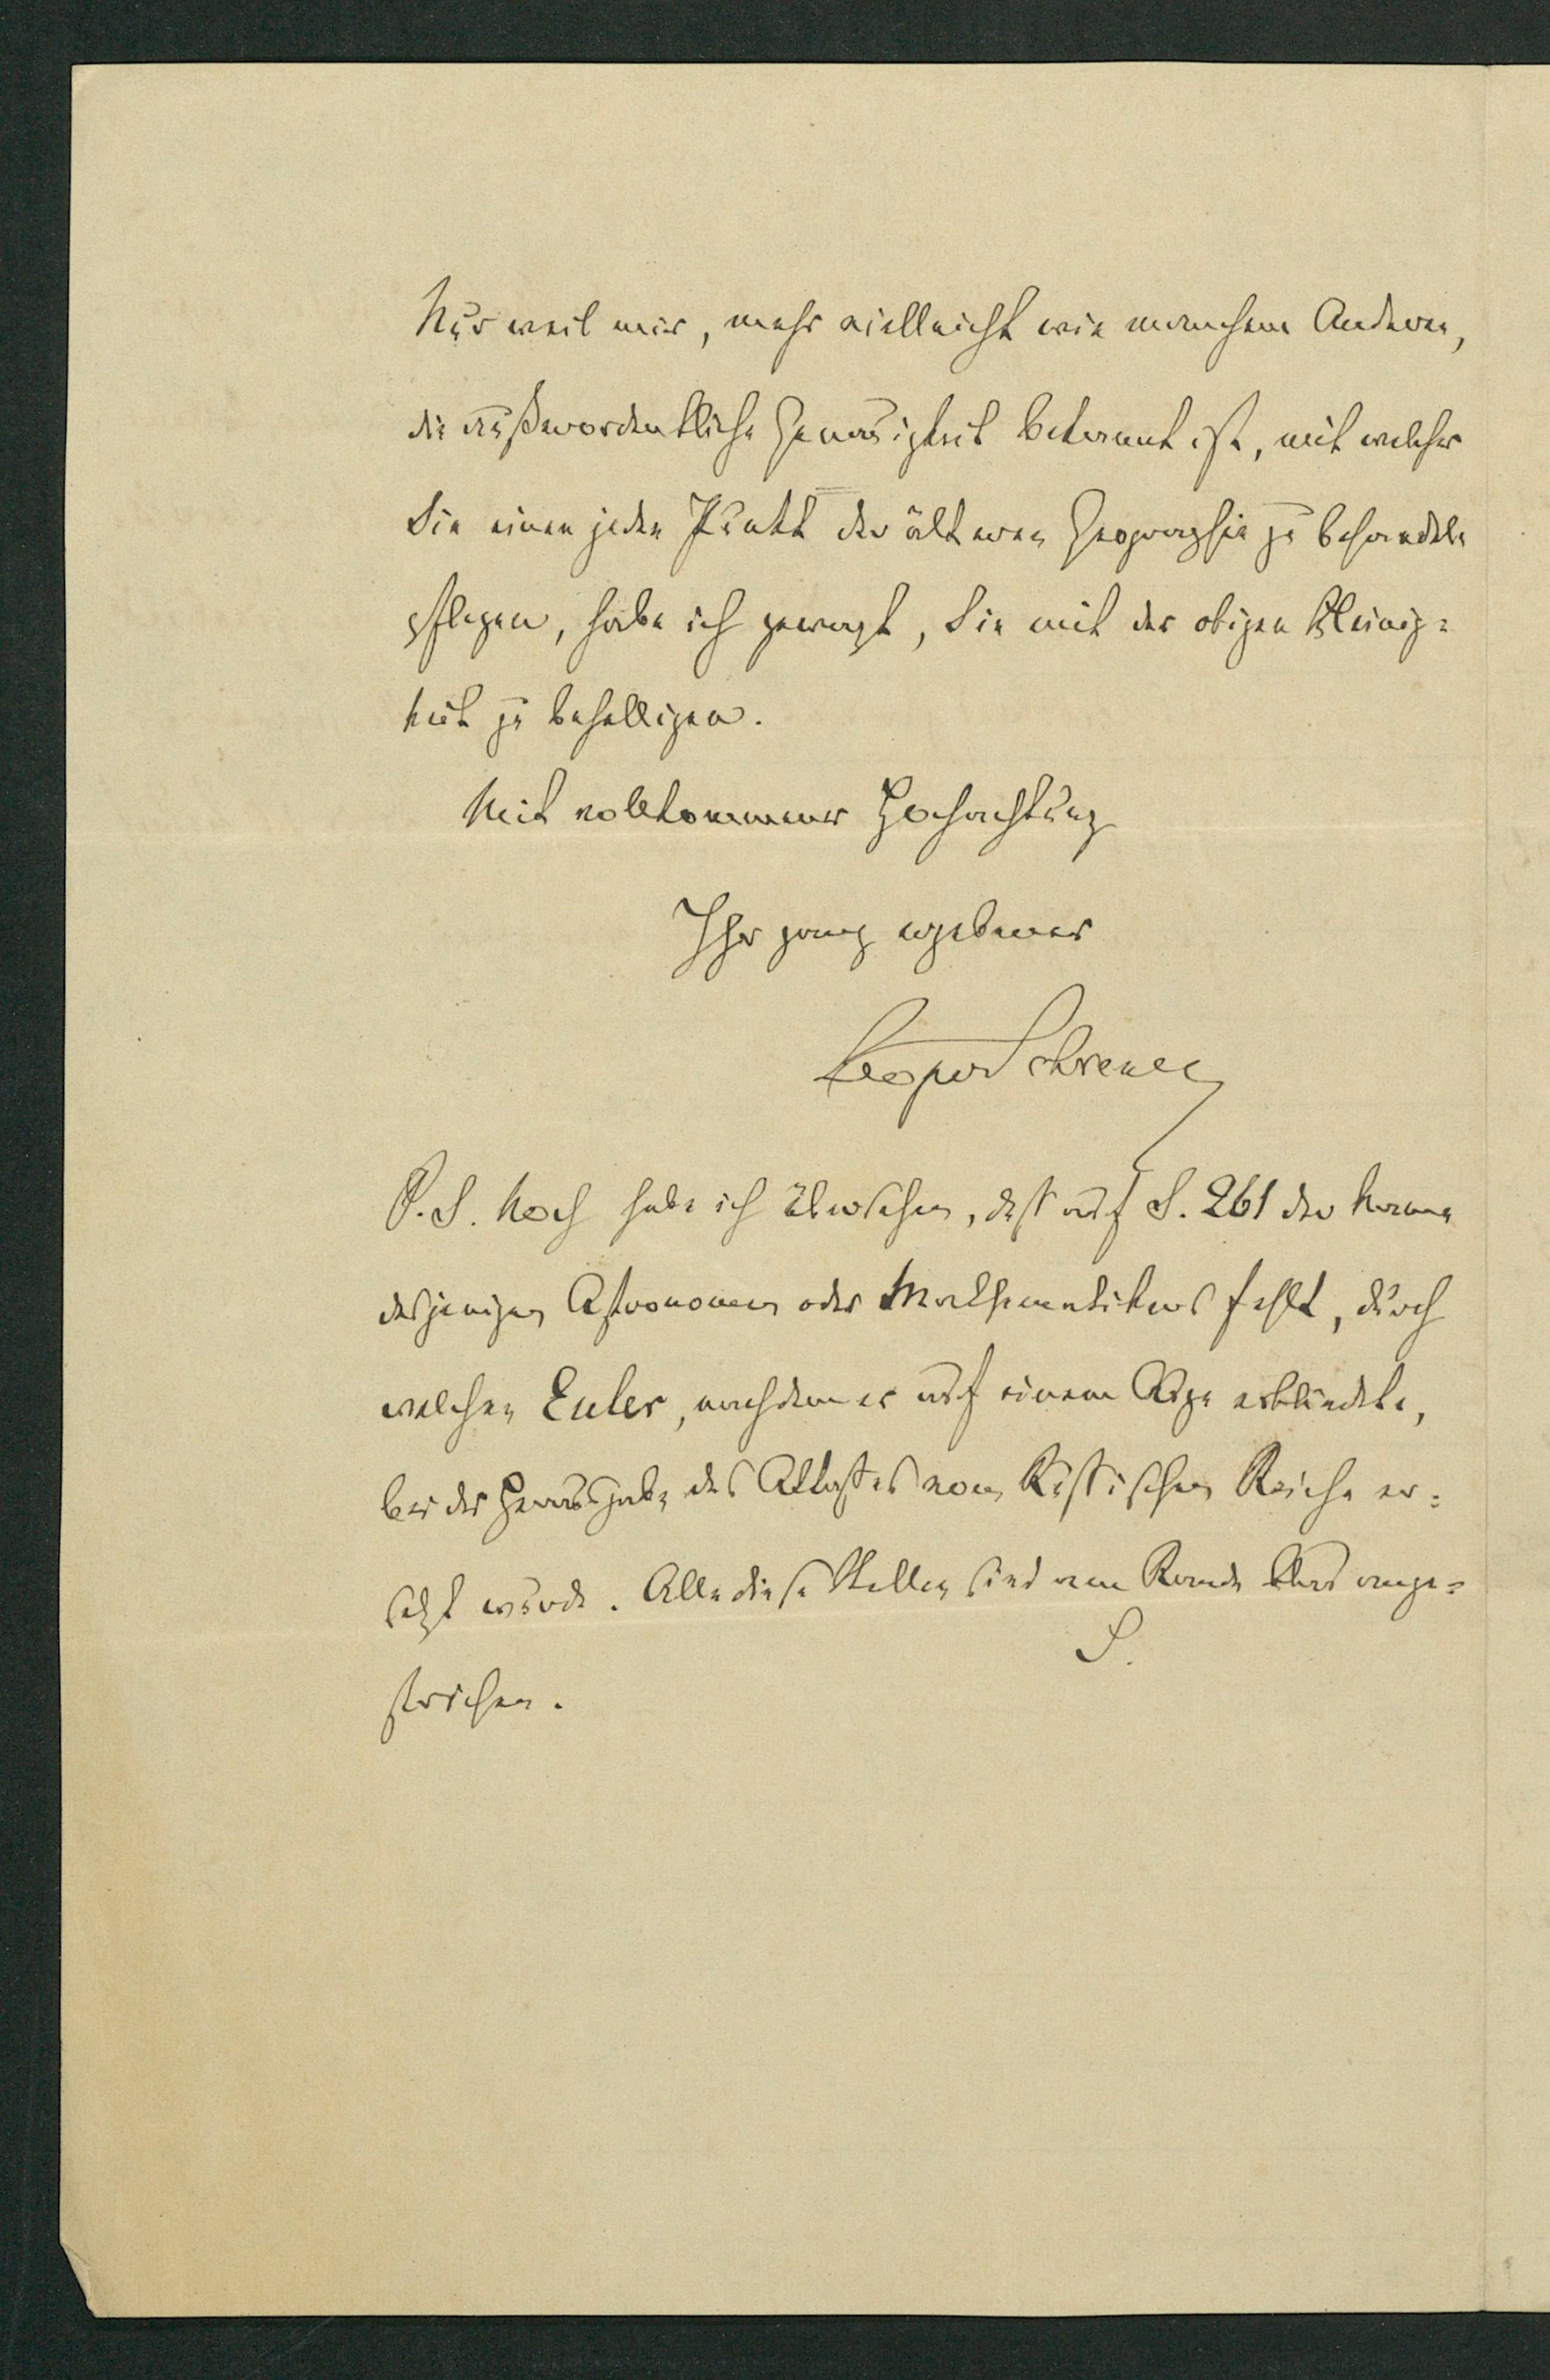 Nur weil mir, mehr vielleicht wie manchem Anderen,
die außerordentliche Genauigkeit bekannt ist, mit welcher
Sie einen jeden Punkt der älteren Geographie zu behandeln
pflegen, habe ich gewagt, Sie mit der obigen Kleinig-
keit zu behelligen.
Mit vollkommener Hochachtung
Ihr ganz ergebener
Leopold Schrenck
P.S. Noch habe ich übersehen, daß auf S. 261 der Name
desjenigen Astronomen oder Mathematikers fehlt, durch
welchen Euler, nachdem er auf einem Auge erblindete,
bei der Herausgabe des Atlasses vom Russischen Reiche er-
setzt wurde. Alle diese Stellen sind am Rande blau ange-
S.
strichen.